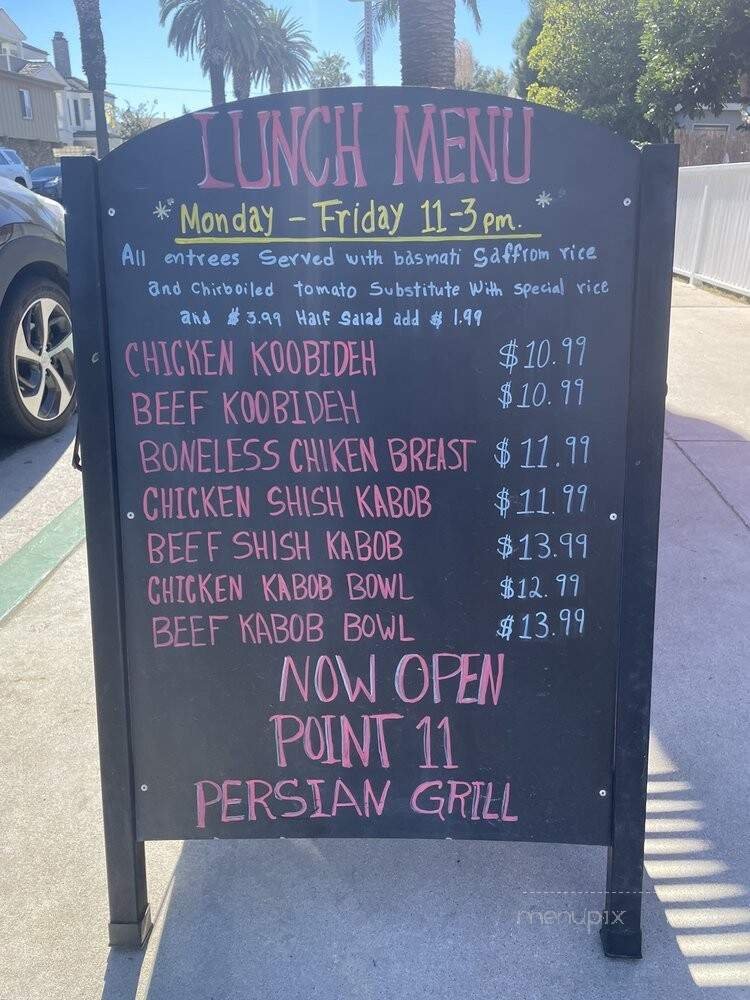 LUNCH MENU
* Monday - Friday 11-3 pm. *
All entrees Served with basmati Saffrom rice
and Chirboiled tomato Substitute With special rice
and $3.99 Half Salad add $1.99
CHICKEN KOOBIDEH $10.99
BEEF KOOBIDEH $10.99
BONELESS CHIKEN BREAST $11.99
CHICKEN SHISH KABOB $11.99
BEEF SHISH KABOB $13.99
CHICKEN KABOB BOWL $12.99
BEEF KABOB BOWL $13.99
NOW OPEN
POINT 11
PERSIAN GRILL
menupix